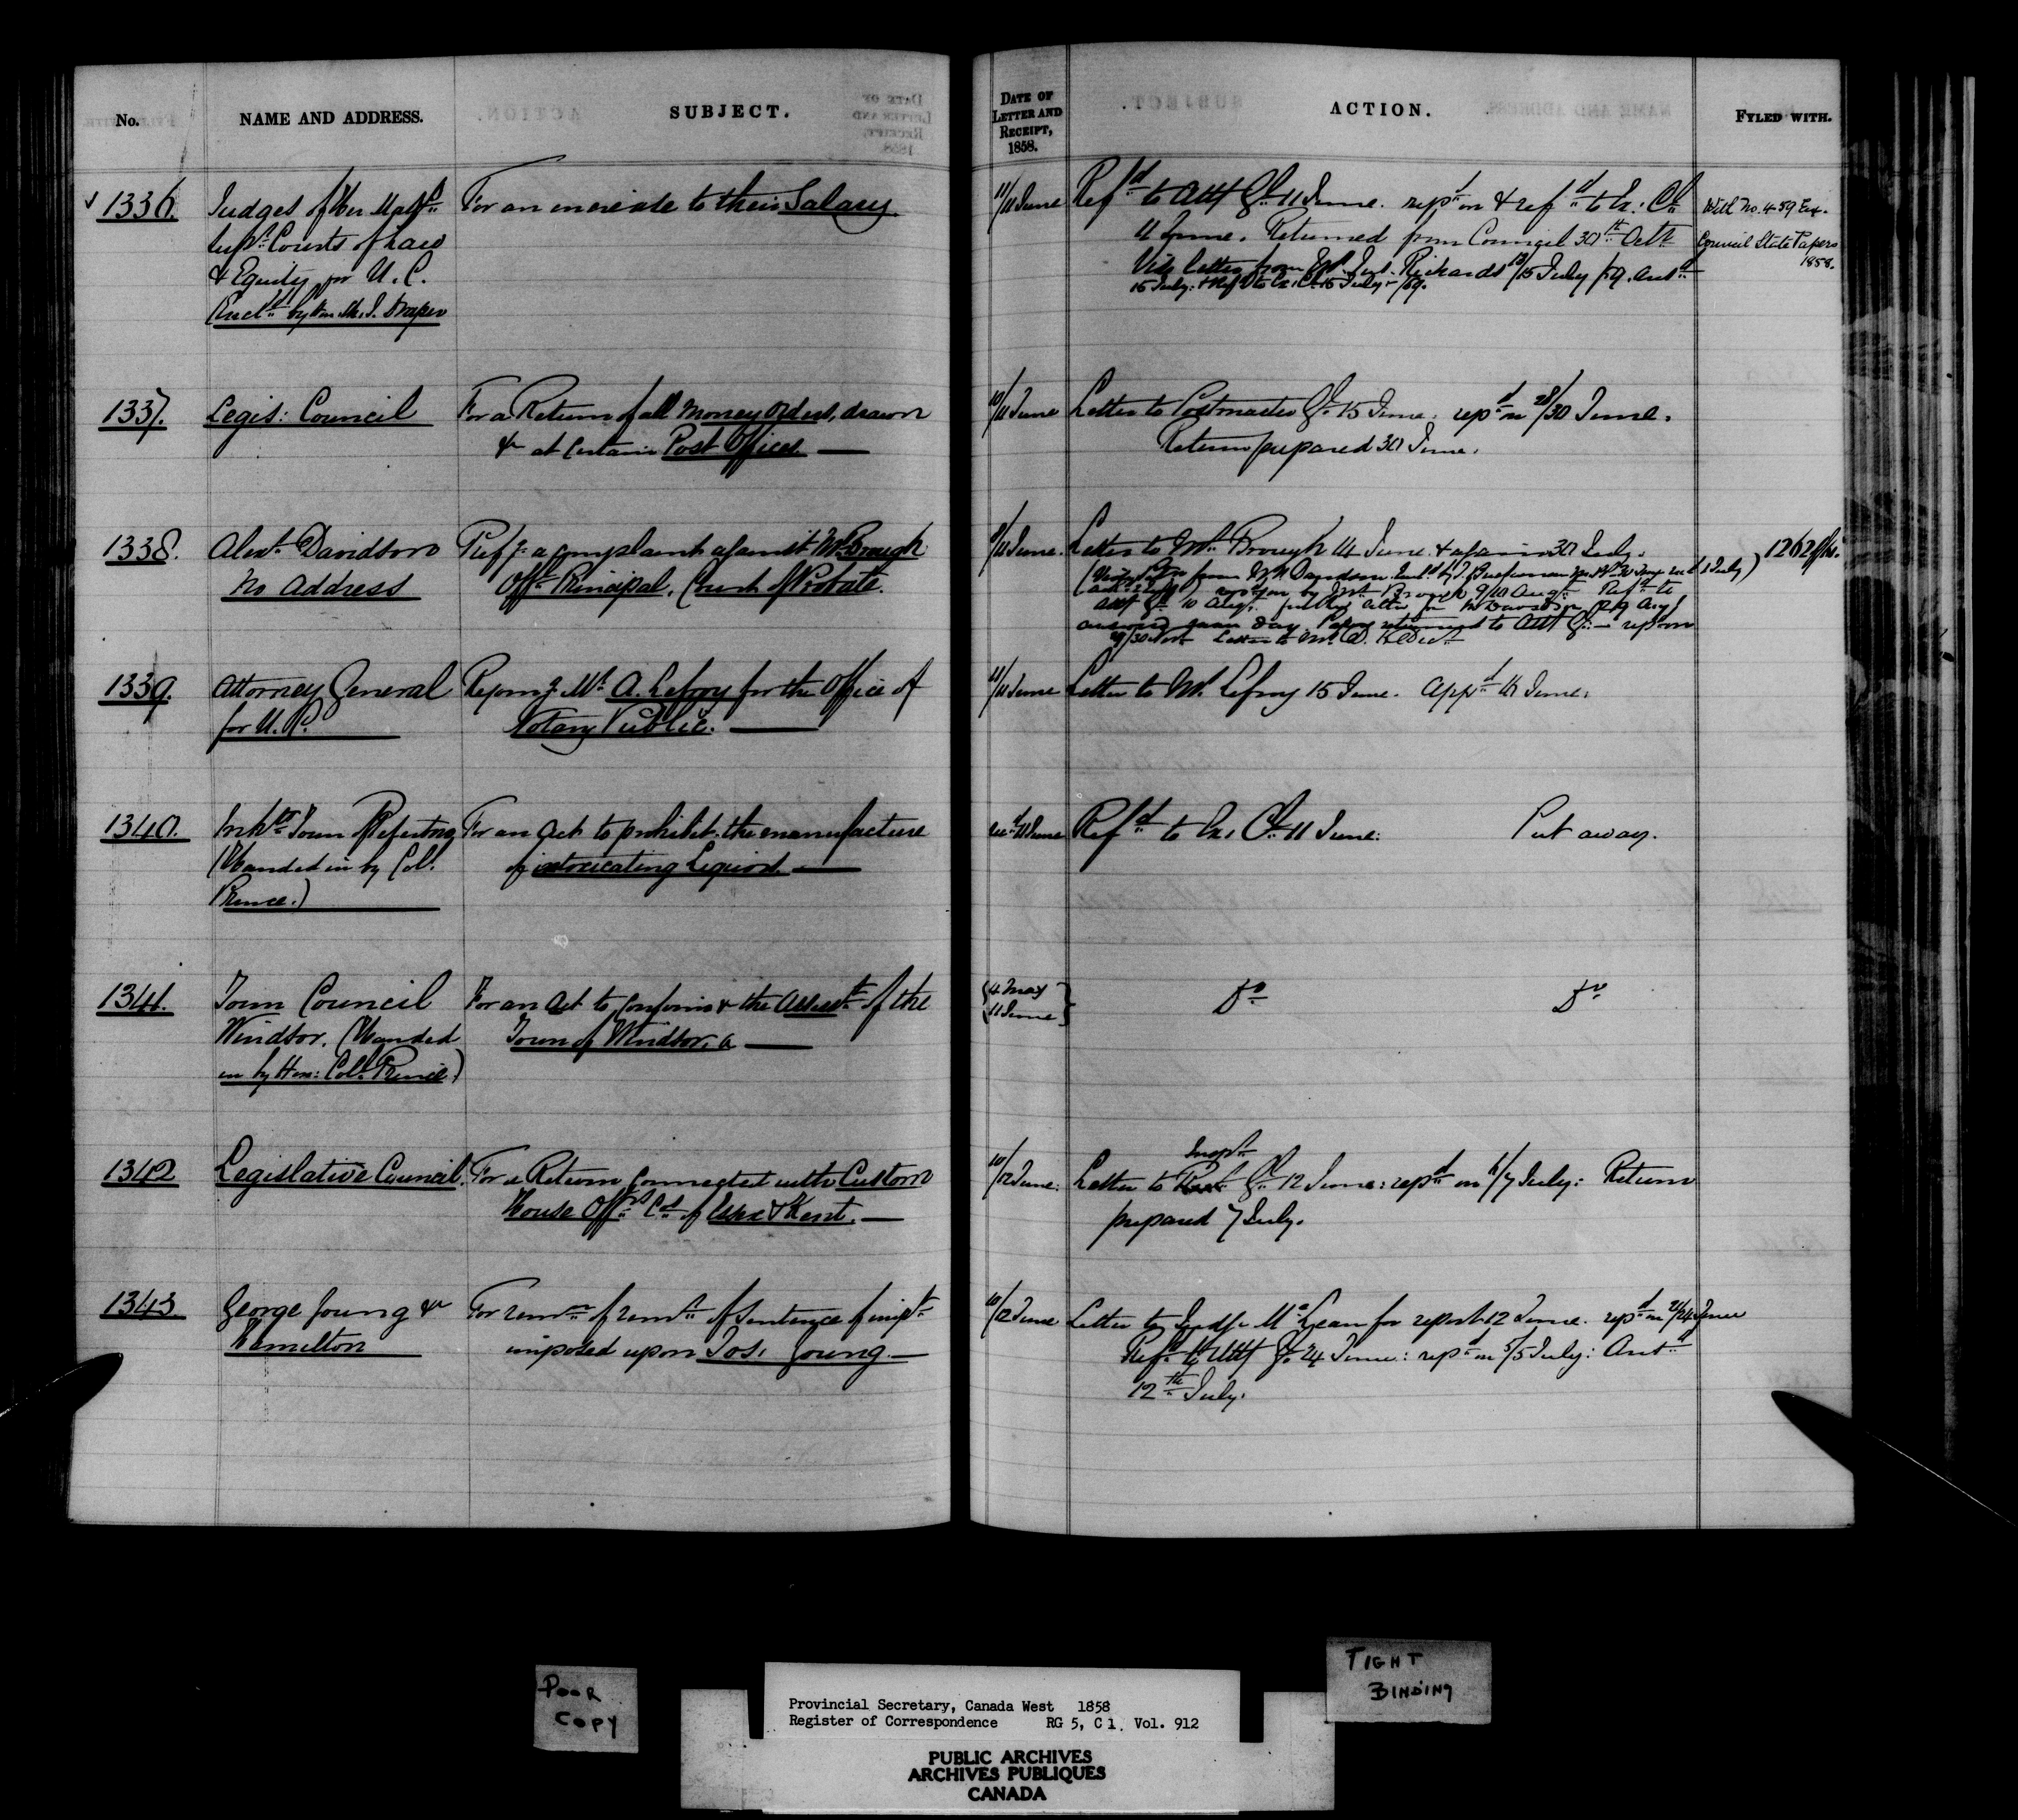 No.
NAME AND ADDRESS.
SUBJECT.
DATE OF LETTER AND RECEIPT, 1858.
ACTION.
FYLED WITH.
1336.
Judges of Her Majs
Supr Courts of Law
& Equity for U. C.
Encld by Hon. W. H. Draper
For an increase to their Salary.
11/11 June
Refd to Att Gl 11 June. repd on & refd to Ex: Cl
11 June. Returned from Council 30th Octr
Vide letter from Mr. Just. Richards 13/15 July /59. Ansd
15 July: & Refd to Ex: Cl 15 July /59.
With No. 459 Exe.
Council State Papers
1858.
1337.
Legis: Council
For a Return of all Money Orders, drawn
& at Certain Post Offices.
10/11 June
Letter to Postmaster Gl 15 June. repd on 28/30 June.
Return prepared 30 June.
1338.
Alexr Davidson
No Address
Prefg a complaint against Mr Brough
Offl Principal, Court of Probate.
9/11 June.
Letter to Mr Brough 14 June & again 30 July.
from Mr Davidson
by Mr Brough 9/10 Augt Refd to
Att Gl 10 Augt. further letter fm Mr Davidson 29 Augt
answered same day. Papers returned to Att Gl — rep on
29/30 Novr Letter to Mr D.
1 July)
1262
1339.
Attorney General
for U. C.
Recomg Mr A. Lefroy for the Office of
Notary Public.
11/11 June
Letter to Mr. Lefroy 15 June. Appd 11 June.
1340.
Town
(Handed in by Col.
Prince.)
For an Act to prohibit the manufacture
of intoxicating Liquors.
11 June
Refd to Ex: Cl 11 June.
Put away.
1341.
Town Council
Windsor. (Handed
in by Hon: Col. Prince.)
For an Act to Confirm & the Assesst of the
Town of Windsor, a
4 May
11 June
Do
Do
1342
Legislative Council.
For a Return Connected with Custom
House Offrs Cos of Essex & Kent.
10/12 June:
Letter to Inspr Gl 12 June: repd on 6/7 July: Return
prepared 7 July.
1343.
George Young &
Hamilton
For remn of remr of Sentence of impt
imposed upon Jos. Young.
10/12 June
Letter to Judge McLean for report 12 June. repd on 21/24 June
Refd to Att Gl 24 June: repd on 5/5 July: Ansd
12th July.
POOR
COPY
TIGHT
BINDING
Provincial Secretary, Canada West 1858
Register of Correspondence RG 5, C 1, Vol. 912
PUBLIC ARCHIVES
ARCHIVES PUBLIQUES
CANADA